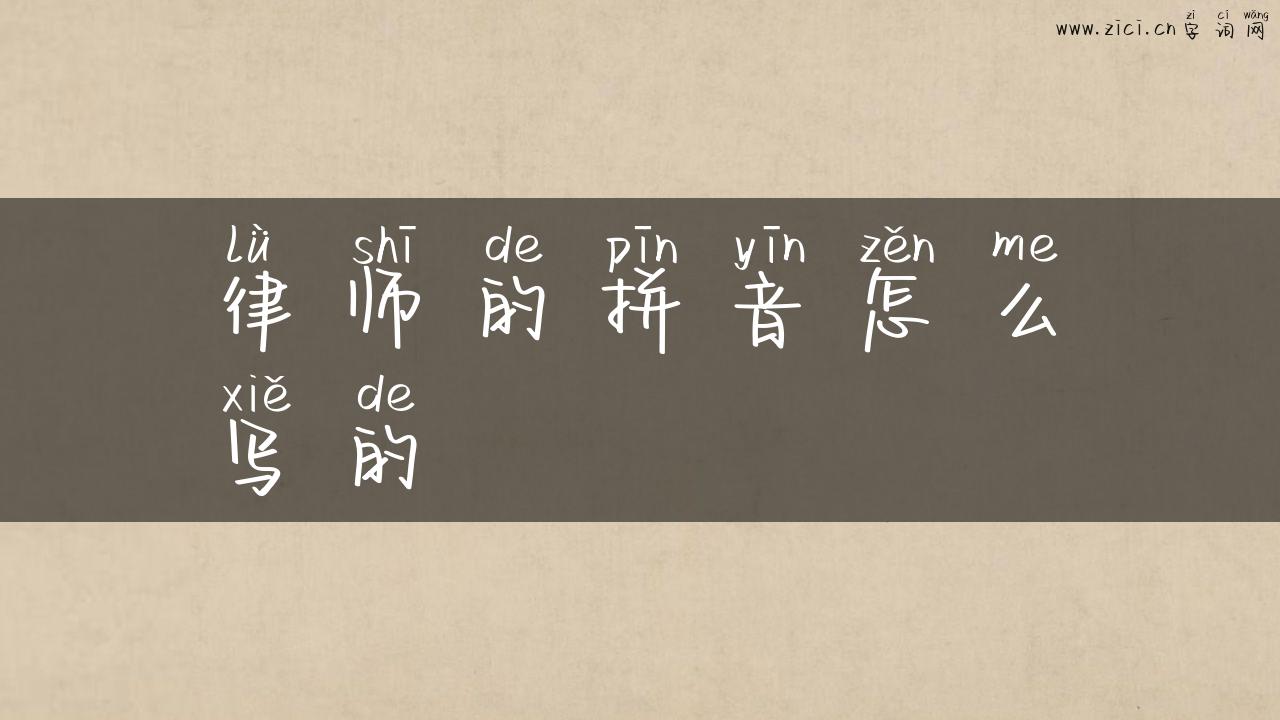 zì cí wǎng
www.zici.cn 字词网
lǜ shī de pīn yīn zěn me
律师的拼音怎么
xiě de
写的